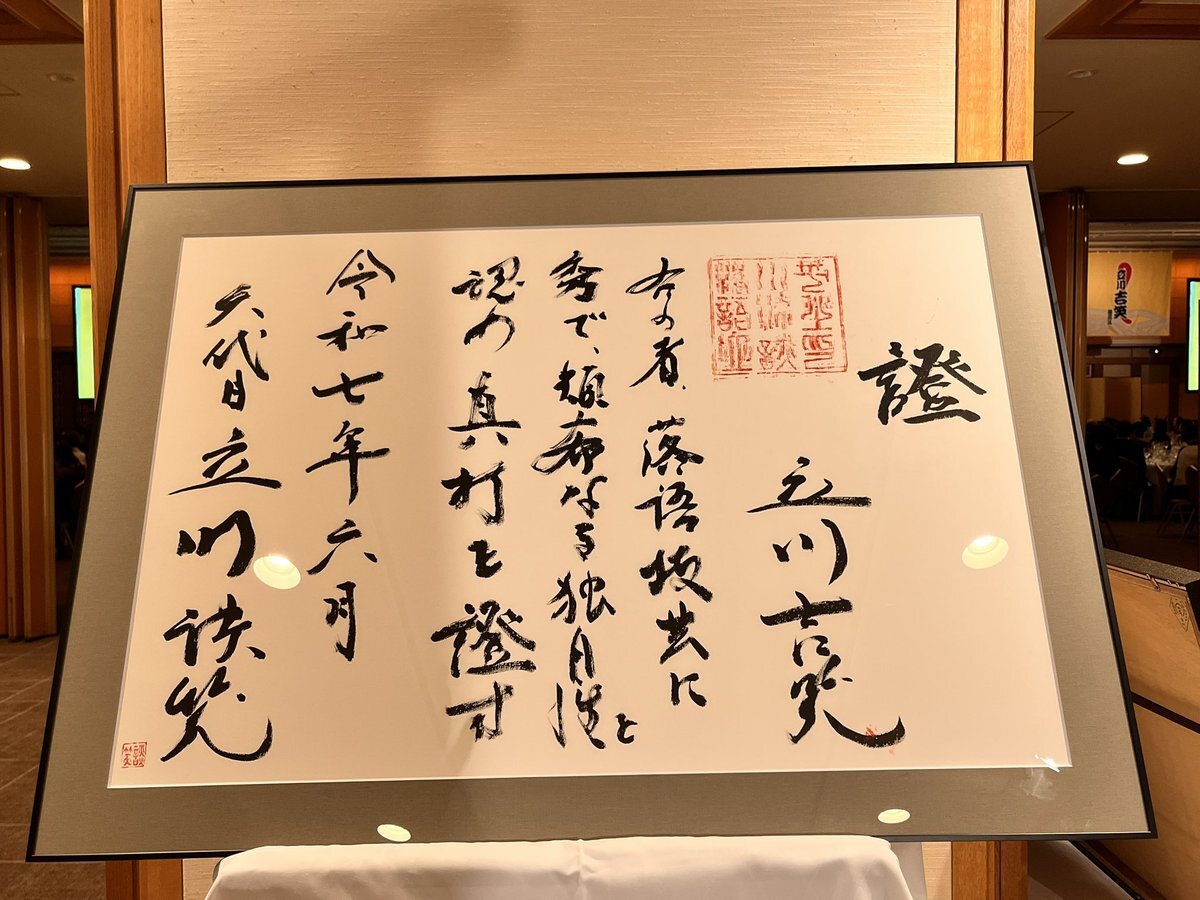 證
立川吉笑
右の者、落語技芸に
秀で、頒布なる独自性と
認め真打と證す
令和七年六月
六代目立川談笑
談笑
立川
吉笑